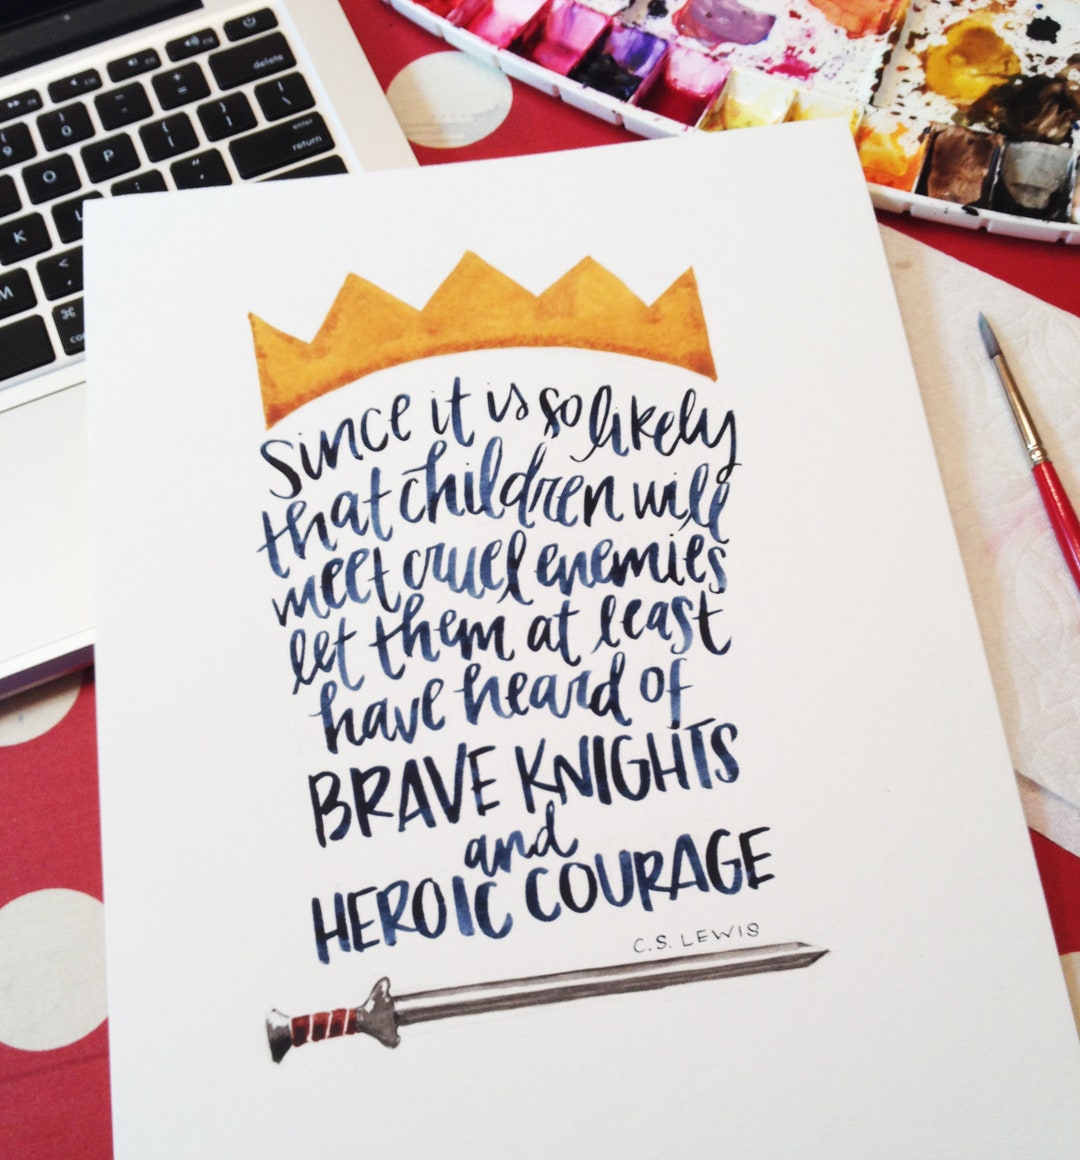 delete
return
enter
O
P
K
L
M
Since it is so likely
that children will
meet cruel enemies
let them at least
have heard of
BRAVE KNIGHTS
and
HEROIC COURAGE
C.S. LEWIS